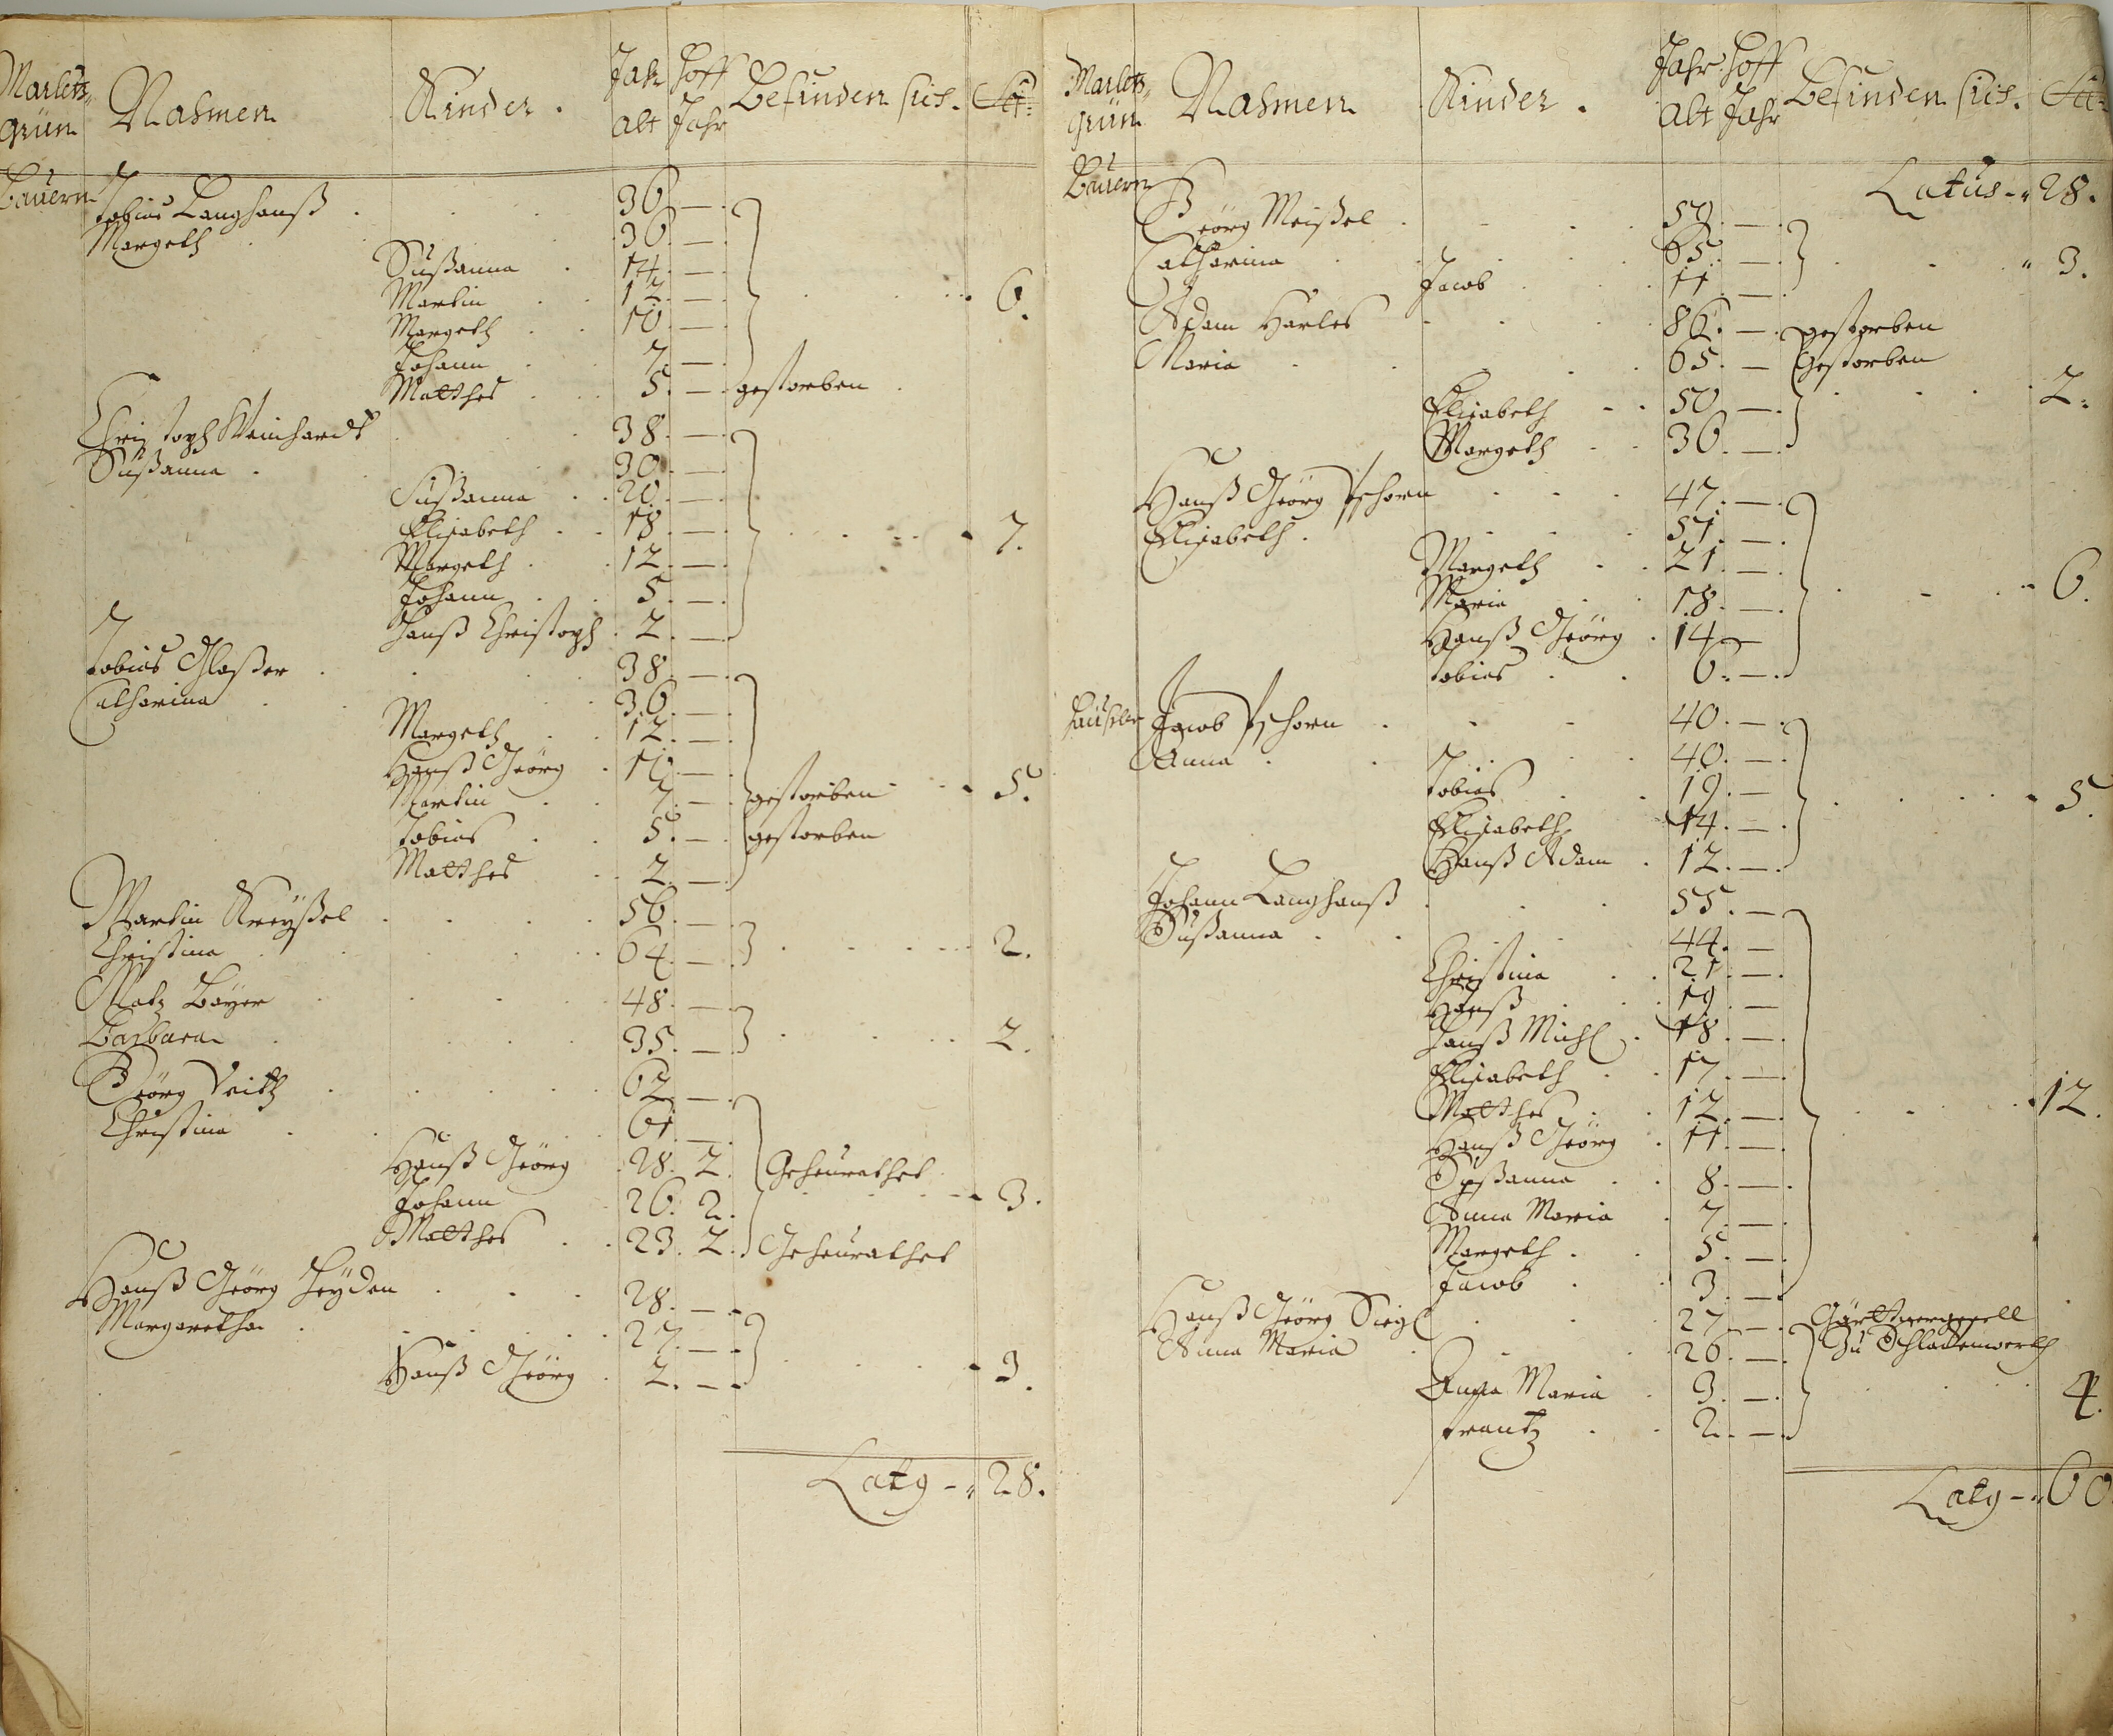 Marlets-
grün Nahmen Kinder. Jahr alt hoff Jahr Befinden sich. St:
Bauern
Tobias Langhanß . . . 36. —
Margeth . . . 36. —
Sußanna . 14. —
Martin . . 12. — . . . 6.
Margeth . . 10. —
Johann . . 7. —
Matthes . . 5. — gestorben .
Christoph Weinhardt . . 38. —
Sußanna . . 30. —
Sußanna . . 20. —
Elisabeth . . 18. — . . . 7.
Margeth . . 12. —
Johann . . 5. —
Hanß Christoph . 2. —
Tobias Glaßer . . . 38. —
Catharina . . . 36. —
Margeth . . 12. —
Hanß Geörg . 10. —
Martin . . 7. — gestorben . . 5.
Tobias . . 5. — gestorben
Matthes . . 2. —
Martin Kreÿßel . . . 56. —
Christina . . . 64. — . . . 2.
Matz Baÿer . . . 48. —
Barbara . . . 35. — . . . 2.
Geörg Veith . . . 62. —
Christina . . . 61. —
Hanß Geörg . 28. 2. Geheurathet
Johann . 26. 2. . . . 3.
Matthes . . 23. 2. Geheurathet
Hanß Geörg Heÿden . . . 28. —
Margaretha . . . 27. —
Hanß Geörg . 2. — . . . 3.
Latg -" 28.
Marlets-
grün Nahmen Kinder. Jahr alt hoff Jahr Befinden sich. St:
Bauern
Latus -" 28.
Geörg Meißel . . . 50. —
Catharina . . . 65. — . . " 3.
Jacob . . 11. —
Adam Harles . . . 86. — gestorben
Maria . . . 65. — Gestorben
Elisabeth . . 50. — . . . 2.
Margeth . . 36. —
Hanß Geörg Pschorn . . . 47. —
Elisabeth . . . 51. —
Margeth . . 21. —
Maria . . 18. — . . . 6.
Hanß Geörg . 14. —
Tobias . . 6. —
Häußler
Jacob Pschorn . . . 40. —
Anna . . . 40. —
Tobias . . 19. —
Elisabeth 14. — . . . 5.
Hanß Adam . 12. —
Johann Langhanß . . . 55. —
Sußanna . . . 44. —
Christina . . 21. —
Hanß . . 19. —
Hanß Michl . 18. —
Elisabeth . . 17. —
Matthes . . 12. — . . . 12.
Hanß Geörg . 11. —
Sußanna . . 8. —
Anna Maria . 7. —
Margeth . . 5. —
Jacob . . 3. —
Hanß Geörg Siegl . . . 27. — Gärttnergesell
Anna Maria . . . 26. — Zu Schlackenwerth
Anna Maria . 3. — . . . 4.
Frantz . . 2. —
Latg -" 60